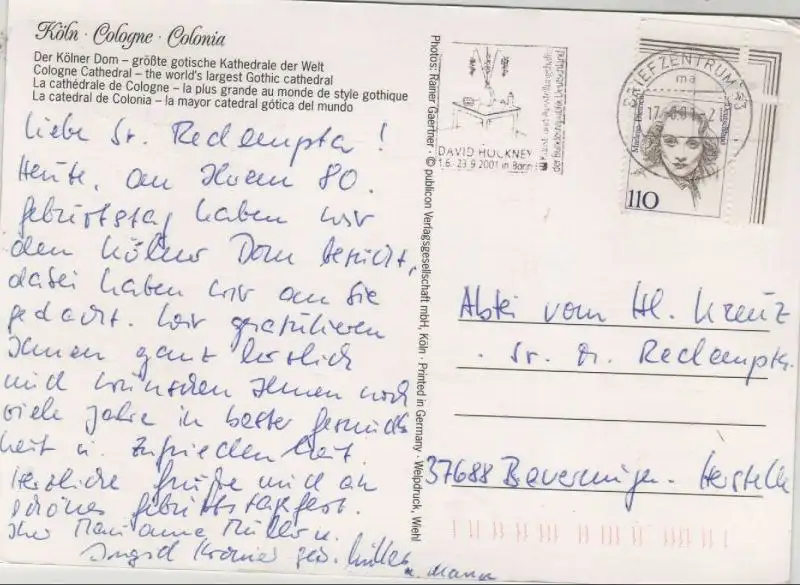 Köln · Cologne · Colonia
Der Kölner Dom – größte gotische Kathedrale der Welt
Cologne Cathedral – the world's largest Gothic cathedral
La cathédrale de Cologne – la plus grande au monde de style gothique
La catedral de Colonia – la mayor catedral gótica del mundo
Liebe Sr. Redempta!
Heute, an Ihrem 80.
Geburtstag haben wir
den Kölner Dom besucht,
dabei haben wir an Sie
gedacht. Wir gratulieren
Ihnen ganz herzlich
und wünschen Ihnen noch
viele Jahre in bester Gesund-
heit u. Zufriedenheit.
Herzliche Grüße und ein
schönes Geburtstagsfest.
Ihre Marianne Müller u.
Ingrid Krämer geb. Müller
u. Mama
Photos: Rainer Gaertner · © publicon Verlagsgesellschaft mbH, Köln · Printed in Germany · Welpdruck, Wiehl
DAVID HOCKNEY
1.6.-23.9.2001 in Bonn
Kunst- und Ausstellungshalle
der Bundesrepublik Deutschland
BRIEFZENTRUM 53
ma
17. 01.-21
Marlene Dietrich
Deutschland
110
Abtei vom Hl. Kreuz
Sr. M. Redempta
37688 Beverungen-Herstelle